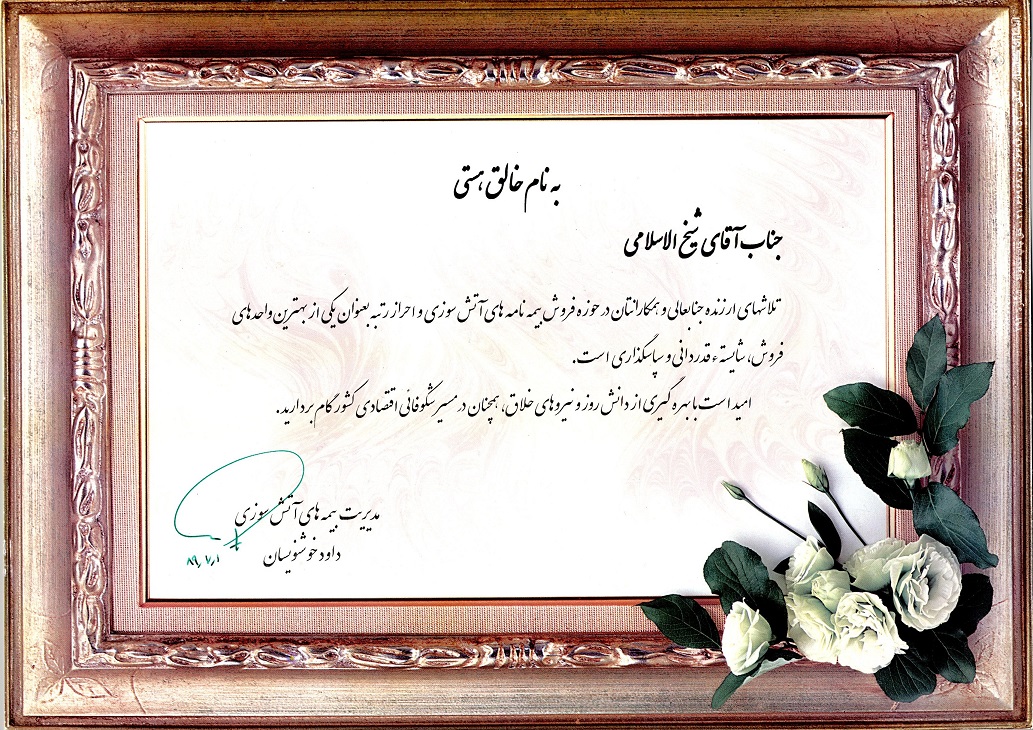 به نام خالق هستی
جناب آقای شیخ الاسلامی
تلاشهای ارزنده جنابعالی و همکارانتان در حوزه فروش بیمه نامه های آتش سوزی و احراز رتبه بعنوان یکی از بهترین واحدهای
فروش، شایستهء قدردانی و سپاسگذاری است.
امید است با بهره گیری از دانش روز و نیروهای خلاق، همچنان در مسیر شکوفائی اقتصادی کشور گام بردارید.
مدیریت بیمه های آتش سوزی
داود خوشنویسان
۸۹٫۷٫۱